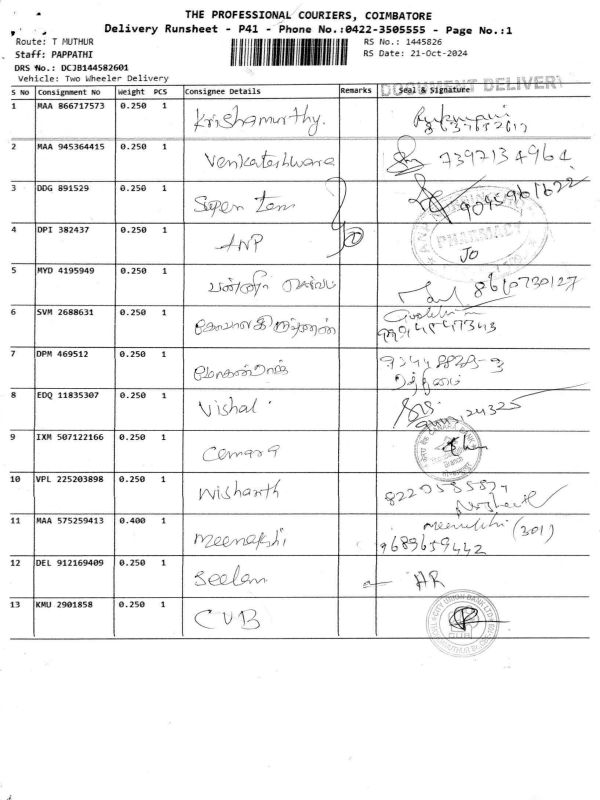 THE PROFESSIONAL COURIERS, COIMBATORE
Delivery Runsheet - P41 - Phone No.:0422-3505555 - Page No.:1
Route: T MUTHUR RS No.: 1445826
Staff: PAPPATHI RS Date: 21-Oct-2024
DRS No.: DCJB144582601
Vehicle: Two Wheeler Delivery DOCUMENT DELIVERY
S No Consignment No Weight PCS Consignee Details Remarks Seal & Signature
1 MAA 866717573 0.250 1 Krishamurthy.
2 MAA 945364415 0.250 1 Venkateshwara 7397134964
3 DDG 891529 0.250 1 Super Tam 9045961622
4 DPI 382437 0.250 1 ANP PHARMACY JO
5 MYD 4195949 0.250 1 8610730127
6 SVM 2688631 0.250 1 கோபாலகிருஷ்ணன்
7 DPM 469512 0.250 1 மோகன்ராஜ்
8 EDQ 11835307 0.250 1 Vishal
9 IXM 507122166 0.250 1 Camara CANARA BANK
10 VPL 225203898 0.250 1 Nishanth
11 MAA 575259413 0.400 1 Meenakshi Meenakshi (301)
9689659442
12 DEL 912169409 0.250 1 Seelam HR
13 KMU 2901858 0.250 1 CUB CITY UNION BANK LTD CUB